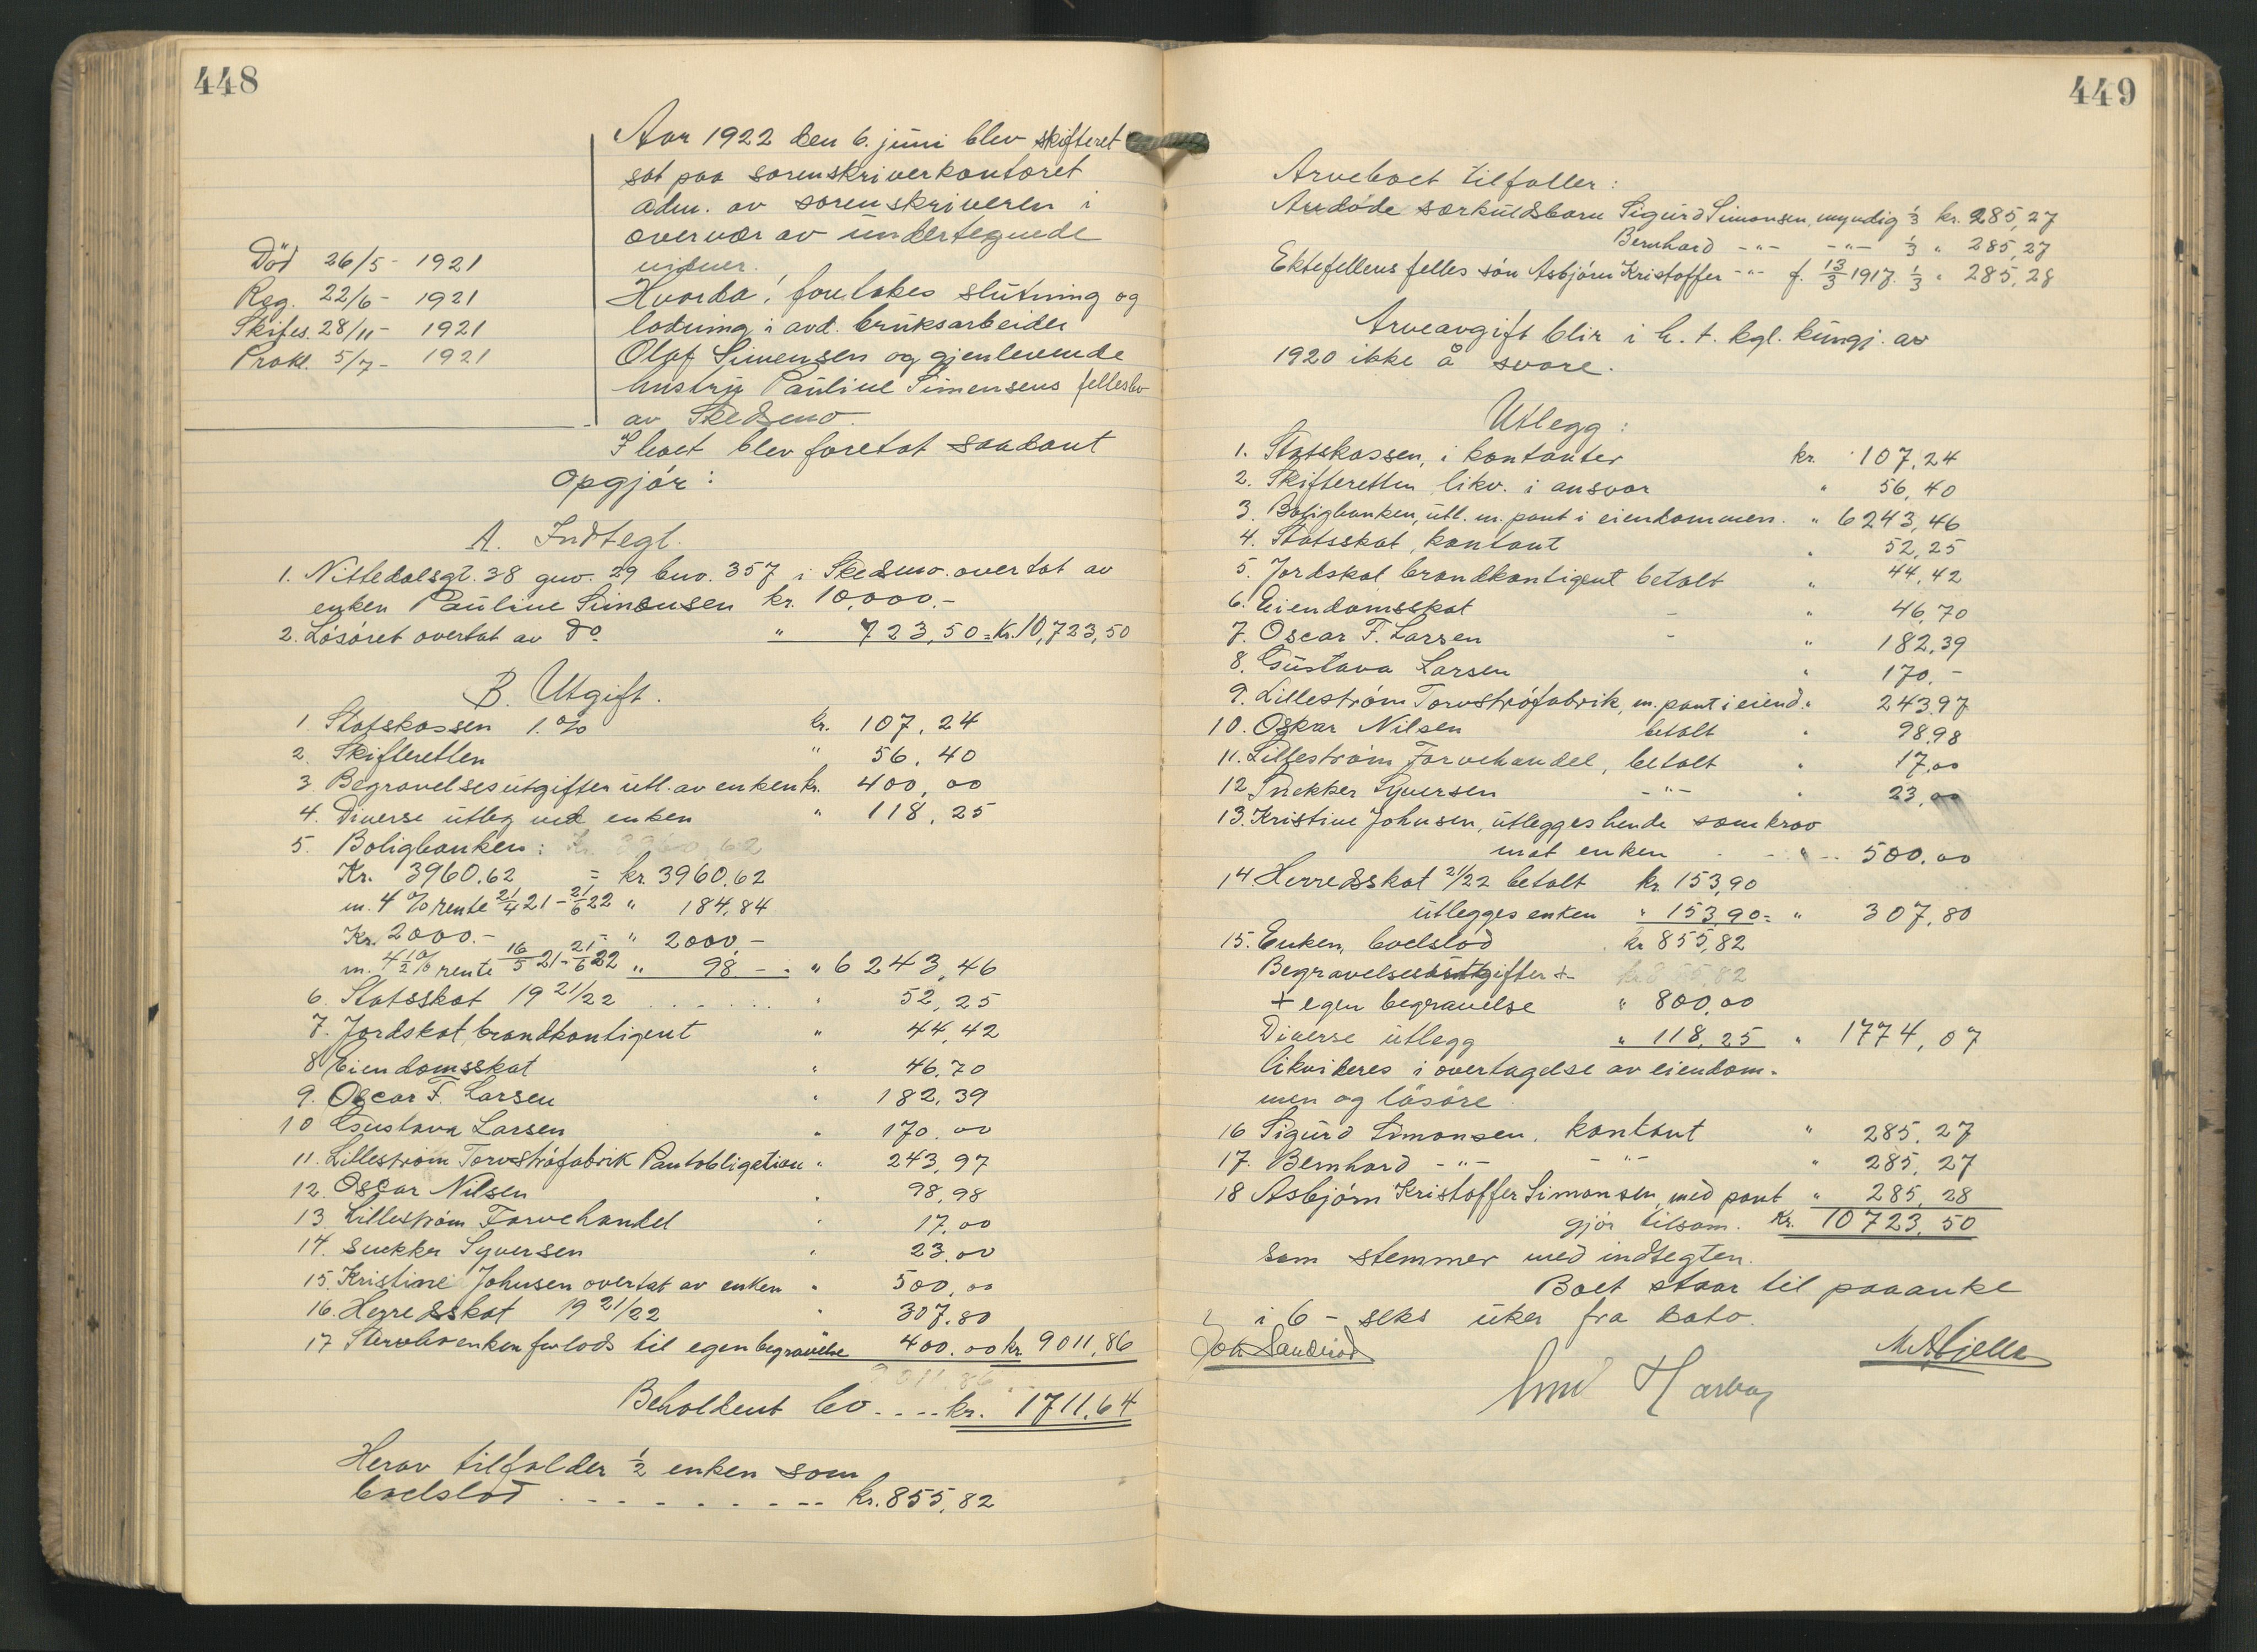 448
Aar 1922 den 6. juni blev skifteret
sat paa sorenskriverkontoret
adm. av sorenskriveren i
overvær av undertegnede
vidner.
Død 26/5 - 1921
Reg. 22/6 - 1921
Skifes. 28/11 - 1921
Prokl. 5/7 - 1921
Hvorda! foretokes slutning og
lodning i avd. bruksarbeider
Olaf Simensen og gjenlevende
hustru Pauline Simensens fellesbo
av Skedsmo.
I boet blev foretat saadant
Opgjør:
A. Indtegt.
1. Nittedalsgt. 38 gno. 29 bno. 357 i Skedsmo. overtat av
enken Pauline Simensen kr. 10,000.-
2. Løsøret overtat av do " 723,50 = Kr. 10,723,50
B. Utgift.
1 Statskassen 1.% kr. 107,24
2. Skifteretten " 56,40
3 Begravelsesutgifter utl. av enken kr. 400,00
4. Diverse utleg ved enken " 118,25
5. Boligbanken:
Kr. 3960.62 = kr. 3960.62
m. 4 % rente 21/4 21 - 21/6 22 " 184,84
Kr. 2000.- = " 2000,-
m. 4 1/2 % rente 16/5 21 - 21/6 22 " 98 - " 6243,46
6. Statsskat 19 21/22 . . . . . . " 52,25
7. Jordskat, brandkontigent " 44,42
8 Eiendomsskat " 46,70
9. Oscar F. Larsen " 182,39
10 Gustava Larsen " 170.00
11. Lillestrøm Torvstrøfabrik Pantobligation " 243,97
12. Oscar Nilsen " 98,98
13. Lillestrøm Farvehandel " 17,00
14. Snekker Syversen " 23.00
15 Kristine Johnsen overtat av enken " 500,00
16. Herredsskat 19 21/22 " 307.80
17 Stervboenken forlods til egen begravelse 400.00 kr. 9011,86
Beholdent bo .... kr. 1711,64
Herav tilfalder 1/2 enken som
boelslod . - - - - - - - - kr. 855,82
449
Arveboet tilfaller:
Avdøde særkuldsbarn Sigurd Simonsen, myndig 1/3 kr. 285,27
Bernhard -"- -"- 1/3 " 285,27
Ektefellens felles søn Asbjørn Kristoffer -"- f. 13/3 1917. 1/3 " 285,28
Arveavgift blir i h. t. kgl. kungj. av
1920 ikke å svare.
Utlegg:
1. Statskassen, i kontanter kr. 107.24
2. Skifteretten likv. i ansvar " 56,40
3. Boligbanken, utl. m. pant i eiendommen. " 6243,46
4. Statsskat, kontant " 52,25
5. Jordskat brandkontigent betalt " 44,42
6. Eiendomsskat - " 46,70
7. Oscar F. Larsen - " 182,39
8. Gustava Larsen " 170.-
9. Lillestrøm Torvstrøfabrik, m. pant i eiend. " 243.97
10. Oskar Nilsen betalt " 98,98
11. Lillestrøm Farvehandel, betalt " 17,00
12 Snekker Syversen -"- " 23,00
13. Kristine Johnsen, utlegges hende som krav
mot enken - - " - 500,00
14 Herredsskat 21/22 betalt kr. 153,90
utlegges enken " 153,90 = " 307,80
15. Enken, boelslod kr 855,82
Begravelsesutgifter +
+ egen begravelse " 800,00
Diverse utlegg " 118,25 " 1774,07
likvideres i overtagelse av eiendom-
men og løsøre.
16 Sigurd Simonsen, kontant " 285,27
17. Bernhard -"- -"- " 285,27
18 Asbjørn Kristoffer Simonsen, med pant " 285,28
gjør tilsam. Kr. 10723,50
som stemmer med indtegten.
Boet staar til paaanke
i 6 - seks uker fra dato.